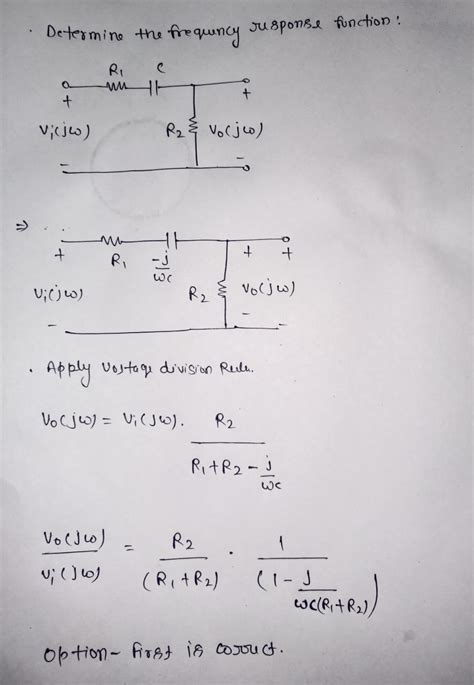 · Determine the frequency response function:
R1 C
+ +
Vi(jω) R2 Vo(jω)
- -
⇒
+ R1 -j/ωc + +
Vi(jω) R2 Vo(jω)
- - -
· Apply Voltage division Rule.
Vo(jω) = Vi(jω). R2 / (R1+R2 - j/ωc)
Vo(jω)/Vi(jω) = R2/(R1+R2) . 1/(1 - j/(ωc(R1+R2)))
option - first is correct.